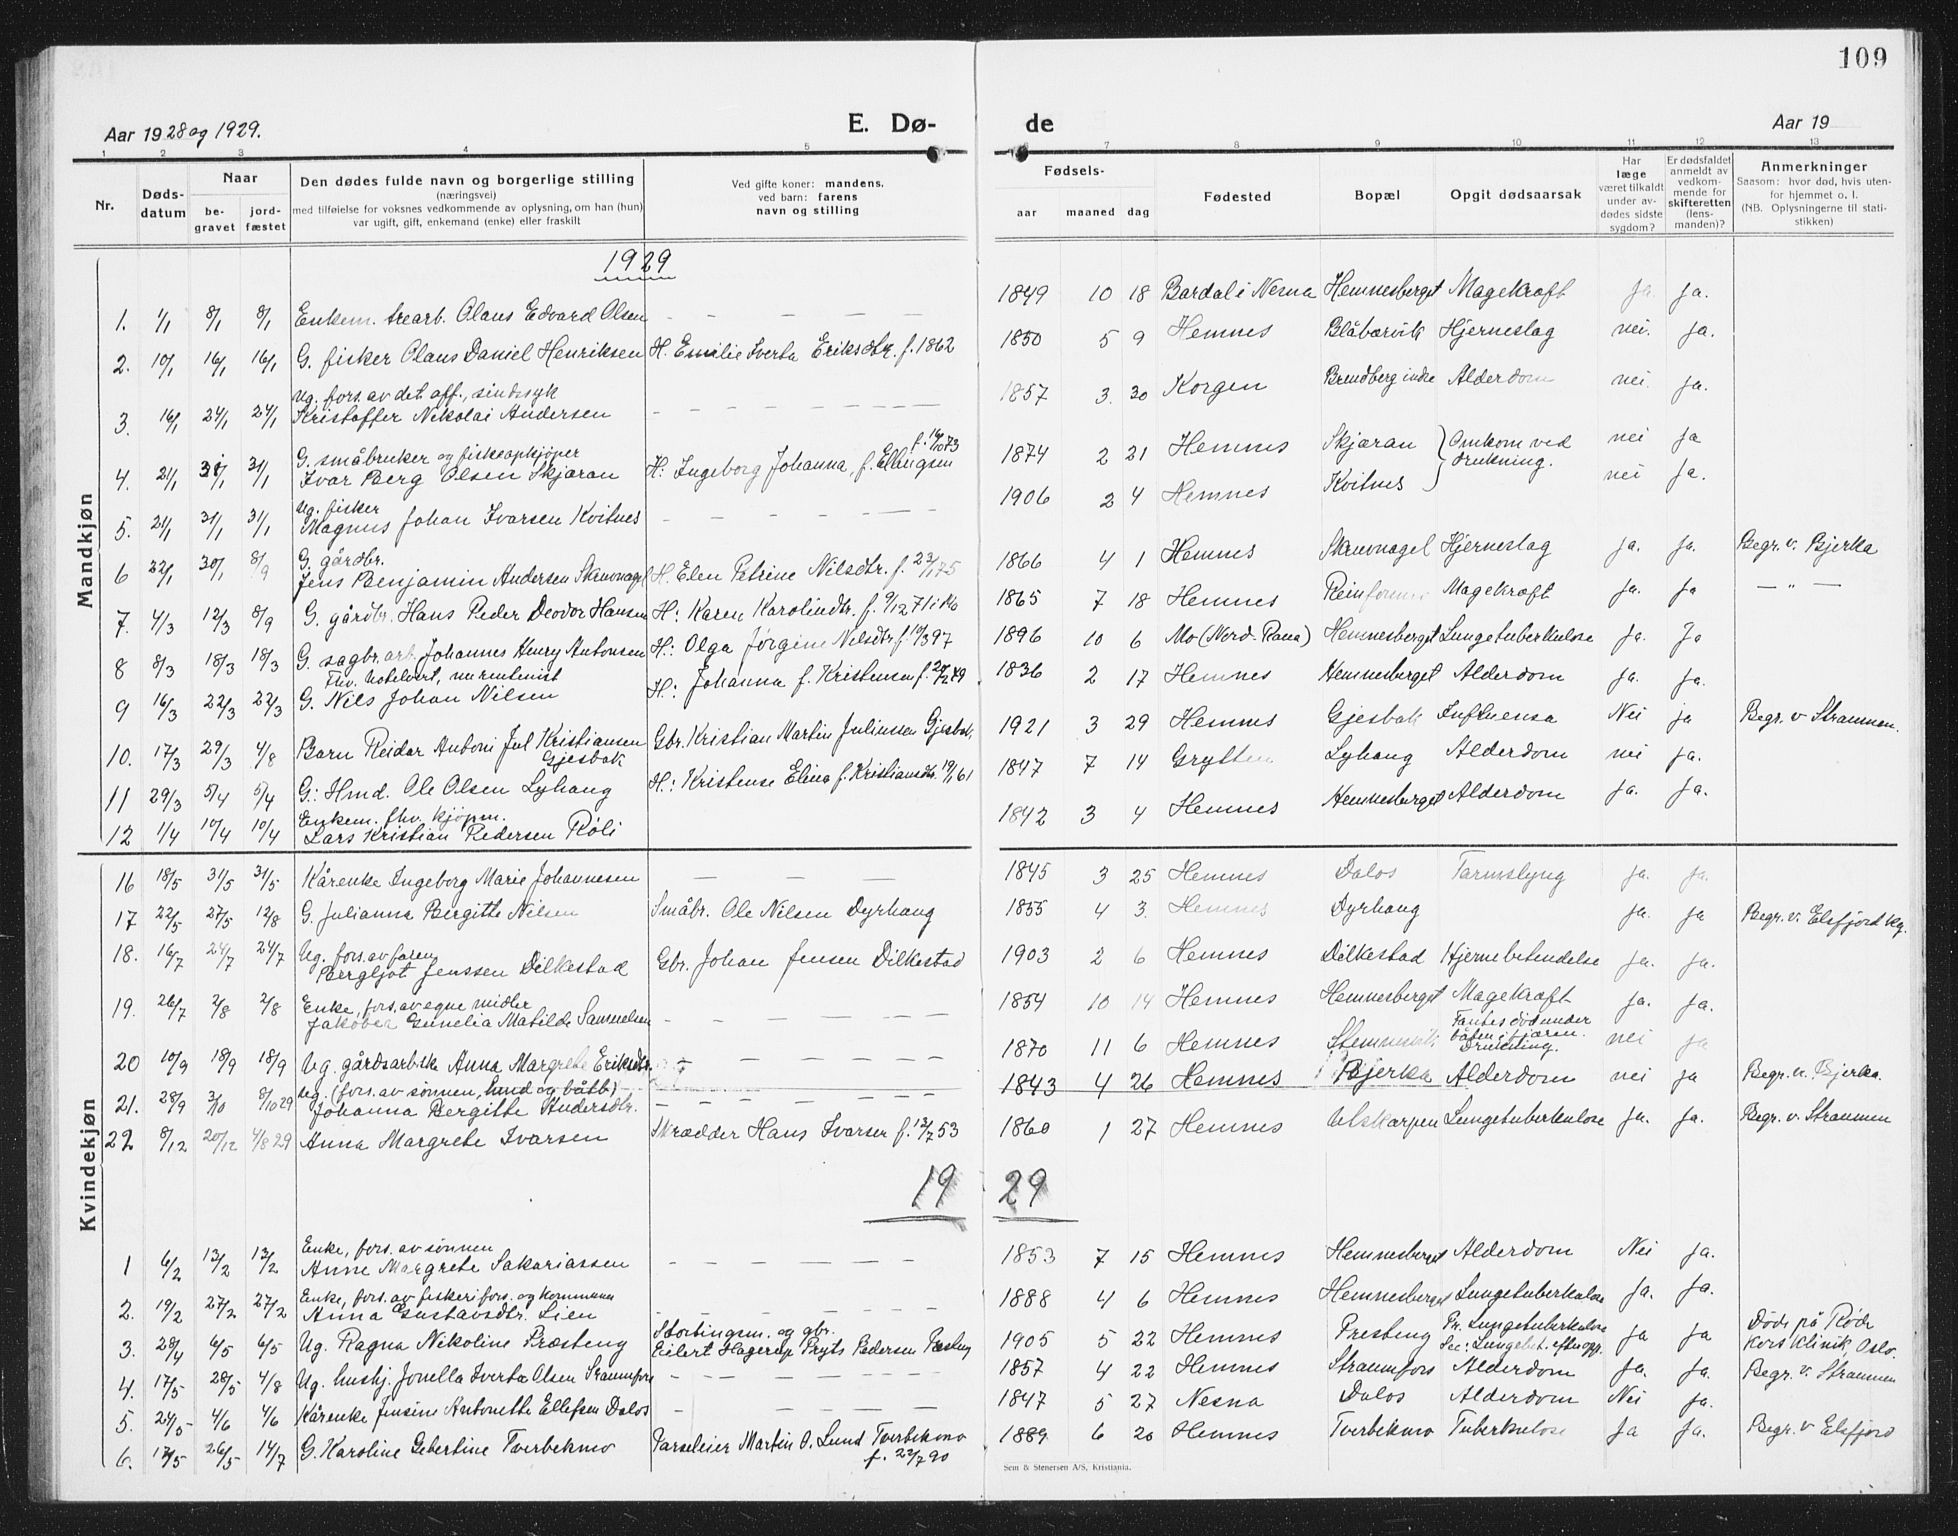 109
Aar 1928 og 1929.
E. Dø- de
Aar 19
1 2 3 4 5 6 7 8 9 10 11 12 13
Nr.
Dødsdatum
Naar
begravet
jordfæstet
Den dødes fulde navn og borgerlige stilling
(næringsvei)
med tilføielse for voksnes vedkommende av oplysning, om han (hun)
var ugift, gift, enkemand (enke) eller fraskilt
Ved gifte koner: mandens,
ved barn: farens
navn og stilling
Fødsels-
aar maaned dag
Fødested
Bopæl
Opgit dødsaarsak
Har læge været tilkaldt under avdødes sidste sygdom?
Er dødsfaldet anmeldt av vedkommende for skifteretten (lensmanden)?
Anmerkninger
Saasom: hvor død, hvis utenfor hjemmet o. l.
(NB. Oplysningerne til statistikken)
Mandkjøn
1929
1. 1/1 8/1 8/1 Enkem. trearb. Olaus Edvard Olsen — — — — 1849 10 18 Bardal i Nesna Hemnesberget Magekræft ja. ja.
2. 10/1 16/1 16/1 G. fisker Olaus Daniel Henriksen H. Emilie Iverta Eriksdtr. f. 1862 1850 5 9 Hemnes Blåbærvik Hjerneslag nei. ja.
Ug. fors. av det off., sindssyk
3. 16/1 24/1 24/1 Kristoffer Nikolai Andersen — — — — 1857 3. 20 Korgen Brendberg indre Alderdom nei ja.
G. småbruker og fiskeopkjøper
4. 21/1 31/1 31/1 Ivar Berg Olsen Skjæran H: Ingeborg Johanna, f. Ellingsen f. 16/12 73 1874 2 21 Hemnes Skjæran } Omkom ved drukning. nei ja
Ug. fisker
5. 21/1 31/1 31/1 Magnus Johan Ivarsen Kvitnes — — — — 1906 2 4 Hemnes Kvitnes nei ja.
G. gårdbr.
6 22/1 30/1 8/9 Jens Benjamin Andersen Skrovnagel H. Elen Petrine Nilsdtr. f. 23/1 75 1866 4 1 Hemnes Skrovnagel Hjerneslag ja. ja. Begr. v. Bjerka
7. 4/3 12/3 8/9 G. gårdbr. Hans Peder Deodor Hansen H: Karen Karolindtr. f. 9/12 71 i Mo 1865 7 18 Hemnes Magekræft ja. ja — " —
8 8/3 18/3 18/3 G. sagbr. arb. Johannes Henry Antonsen H: Olga Jørgine Nilsdtr. f. 19/3 97 1896 10 6 Mo (Nord-Rana) Hemnesberget Lungetuberkulose ja. Ja
Fhv. hotelvert, nu rentenist
9 16/3 22/3 22/3 G. Nils Johan Nilsen H: Johanna f. Kristensen f. 20/2 49 1836 2 17 Hemnes Hemnesberget Alderdom ja. ja.
10. 17/3 29/3 4/8 Barn Reidar Antoni Jul Kristiansen Gjesbak Gbr. Kristian Martin Juliussen Gjesbak 1921 3 29 Hemnes Gjesbak Influensa Nei ja Begr. v Straumen.
11 29/3 5/4 5/4 G: Hmd. Ole Olsen Lyhaug H: Kristense Elina f. Kristiansdtr. 19/1 61 1847 7 14 Grytten Lyhaug Alderdom nei ja.
Enkem. fhv. kjøpm.
12 1/4 10/4 10/4 Lars Kristian Pedersen Røli 1842 3 4 Hemnes Hemnesberget Alderdom ja. ja.
Kvindekjøn
16 18/5 31/5 31/5 Kårenke Ingeborg Marie Johannesen — — — 1845 3 25 Hemnes Dalos Tarmslyng ja. ja.
17 22/5 27/5 12/8 G. Julianna Bergitte Nilsen Småbr. Ole Nilsen Dyrhaug 1855 4 3. Hemnes Dyrhaug ja. ja Begr. v. Elsfjord kg.
Ug. fors. av faren
18. 16/7 24/7 24/7 Bergljot Jenssen Dilkestad Gbr. Johan Jensen Dilkestad 1903 2 6 Hemnes Dilkestad Hjernebetendelse ja. ja.
Enke, fors. av egne midler
19. 26/7 2/8 2/8 Jakobea Gunelia Matilde Samuelsen — — — — 1854 10 14 Hemnes Hemnesberget Magekræft ja. ja.
20 10/9 18/9 18/9 Ug. gårdsarbske Anna Margrete Eriksdtr. — — — — 1870 11 6 Hemnes Fantes død under båten i fjæren. Drukning. nei ja
Ug. (fors. av sønnen, hmd og båtb)
21. 28/9 3/10 8/10 29 Johanna Bergitte Andersdtr. — — — — 1843 4 26 Hemnes Bjerka Alderdom nei ja Begr. v. Bjerka.
22 8/12 20/12 4/8 29 Anna Margrete Ivarsen Skrædder Hans Ivarsen f. 12/7 53 1860 1 27 Hemnes Utskarpen Lungetuberkulose ja. ja. Begr. v. Straumen
1929
Enke, fors. av sønnen
1 6/2 13/2 13/2 Anne Margrete Sakariassen — — — — 1853 7 15 Hemnes Hemnesberget Alderdom Nei ja.
Enke, fors. av fiskeri fors. og kommunen
2. 19/2 27/2 27/2 Anna Gustavsdtr. Lien — — — — 1888 4 6 Hemnes Hemnesberget Lungetuberkulose ja. ja.
3. 28/4 6/5 6/5 Ug. Ragna Nikoline Præsteng Stortingsm. og gbr. Eilert Hagerup Pryts Pedersen Præsteng 1905 5 22 Hemnes Presteng Pr. Lungetuberkulose Sec: Lungebet. efter op. ja ja Døde på Røde Kors Klinik, Oslo.
4. 17/5 28/5 4/8 Ug. hushj. Jonella Iverta Olsen Straumfors — — — — 1857 4 22 Hemnes Straumfors Alderdom ja. ja. Begr. v. Straumen
5. 24/5 4/6 4/6 Kårenke Jensine Antonette Ellefsen Dalos — — — — 1847 5 27 Nesna Dalos Alderdom Nei ja.
6. 17/5 26/5 14/7 G. Karoline Gebertine Tverbekmo Parseleier Martin O. Lund Tverbekmo f. 22/7 90 1889 6 20 Hemnes Tverbekmo Tuberkulose ja ja. Begr. v Elsfjord
Sem & Stenersen A/S, Kristiania.